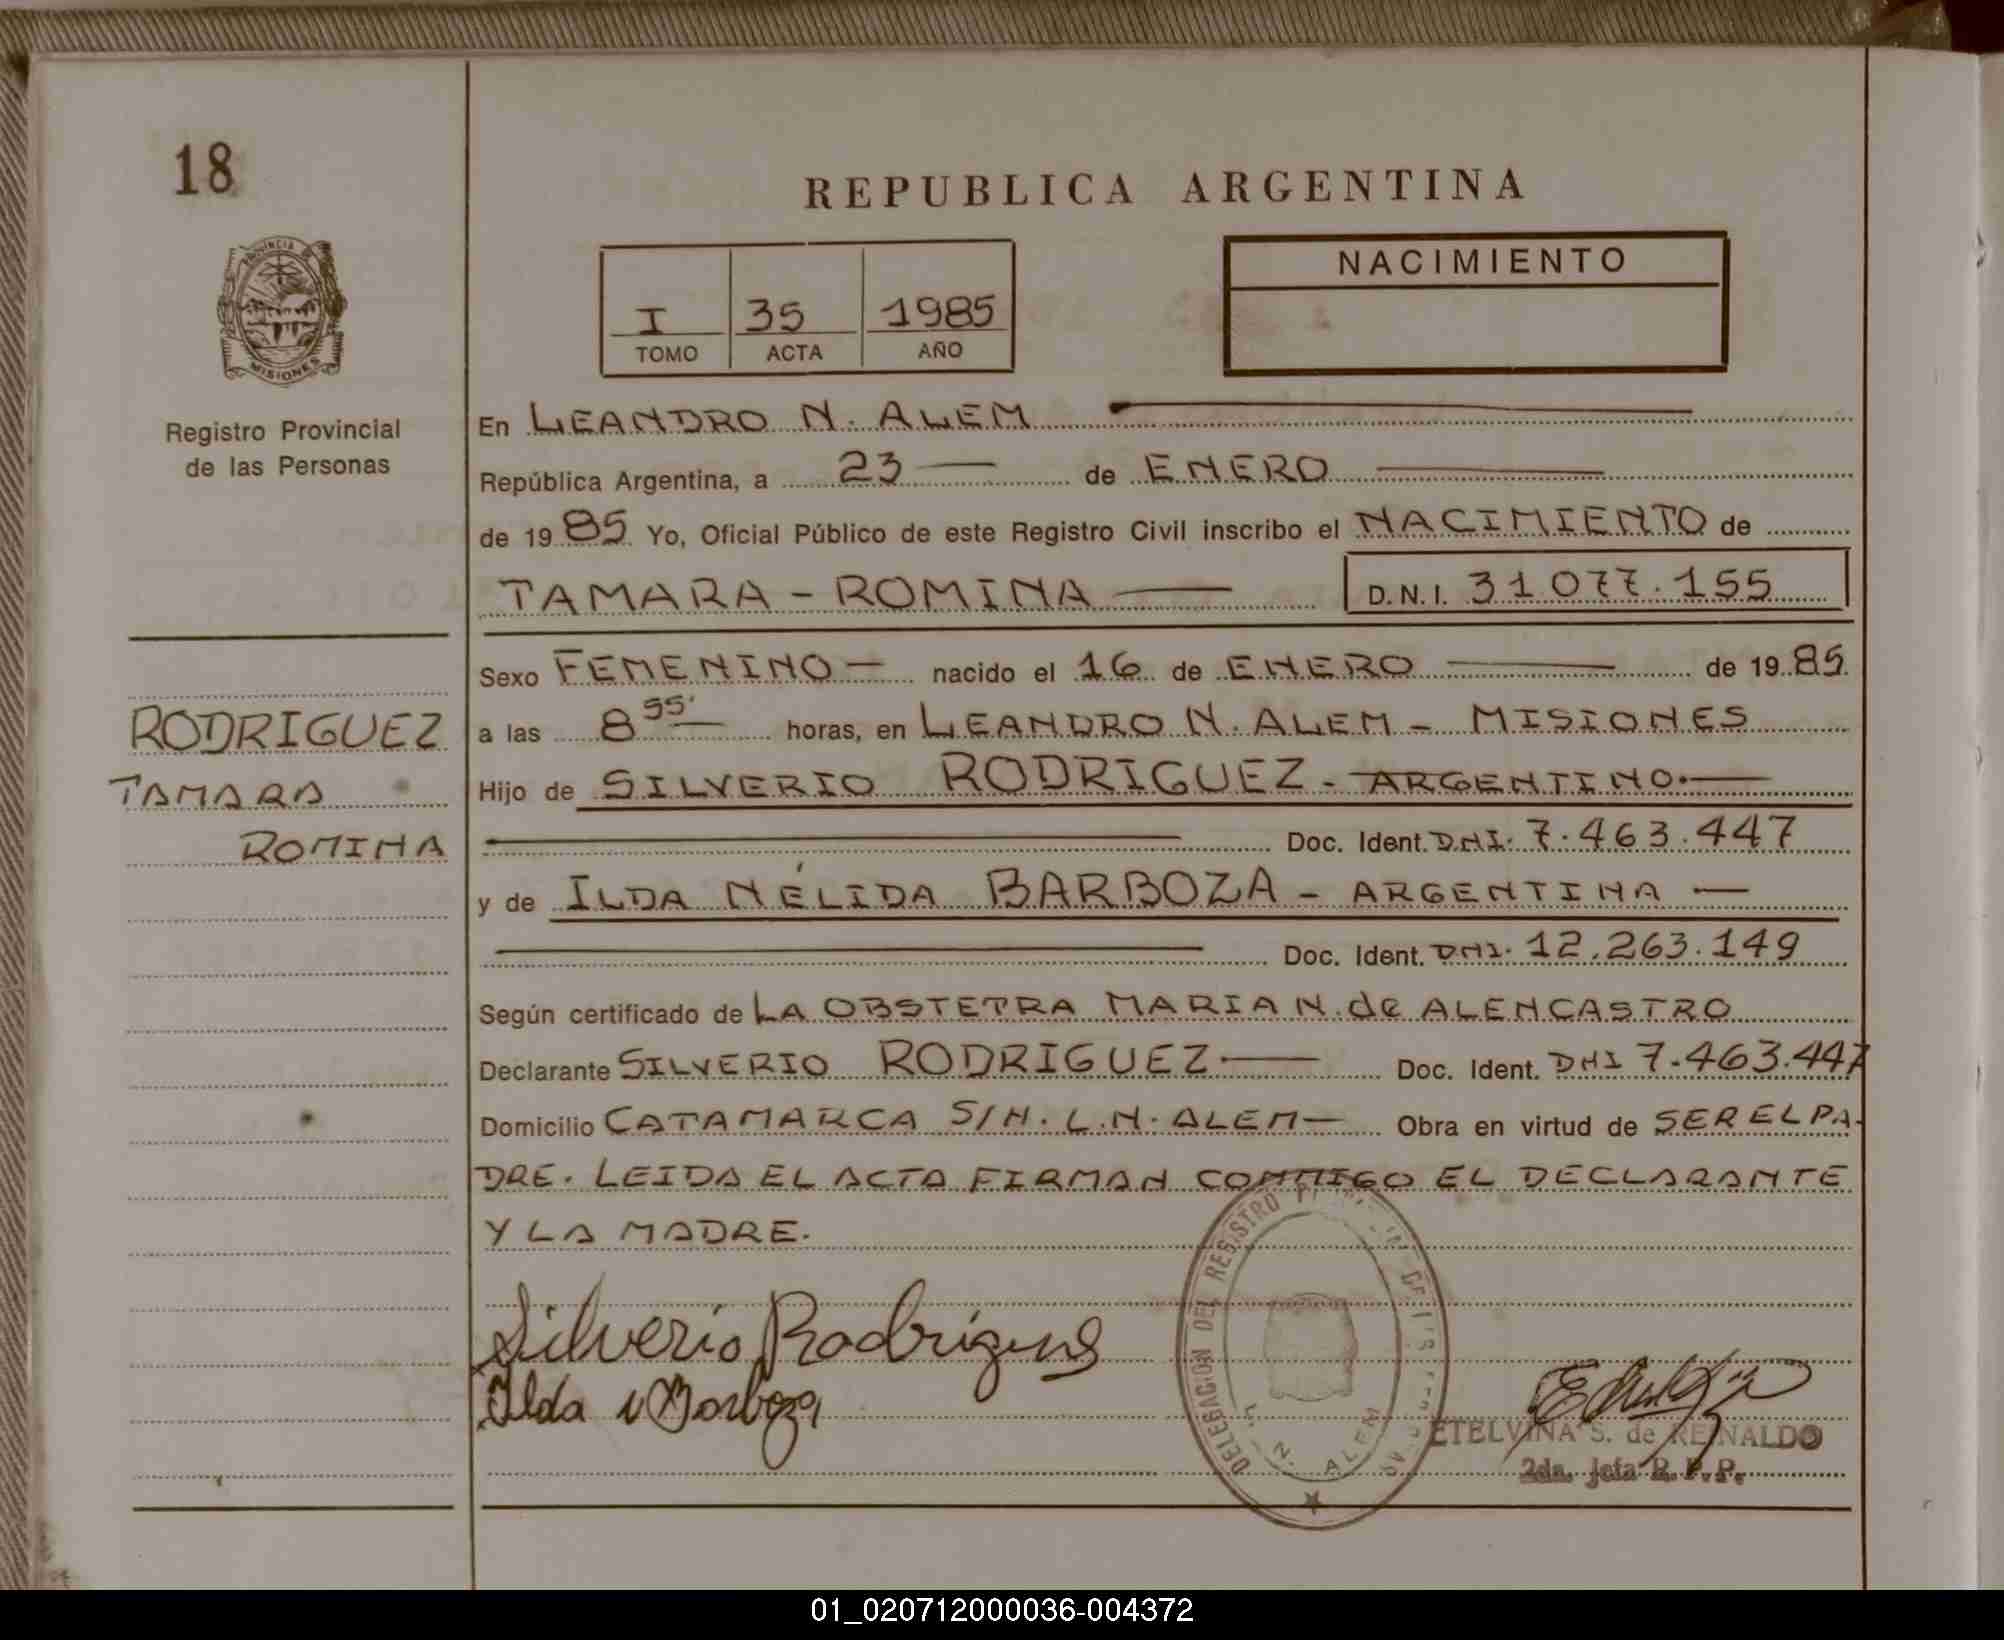 18
REPUBLICA ARGENTINA
PROVINCIA DE
MISIONES
Registro Provincial
de las Personas
I 35 1985
TOMO ACTA AÑO
NACIMIENTO
En LEANDRO N. ALEM
República Argentina, a 23 de ENERO
de 1985 Yo, Oficial Público de este Registro Civil inscribo el NACIMIENTO de
TAMARA - ROMINA D.N.I. 31077.155
Sexo FEMENINO nacido el 16 de ENERO de 1985
RODRIGUEZ
TAMARA
ROMINA
a las 8 55' horas, en LEANDRO N. ALEM - MISIONES
Hijo de SILVERIO RODRIGUEZ - ARGENTINO.
Doc. Ident. DNI. 7.463.447
y de ILDA NÉLIDA BARBOZA - ARGENTINA
Doc. Ident. DNI. 12.263.149
Según certificado de LA OBSTETRA MARIA N. de ALENCASTRO
Declarante SILVERIO RODRIGUEZ Doc. Ident. DNI 7.463.447
Domicilio CATAMARCA S/N. L.N. ALEM Obra en virtud de SER EL PA-
DRE. LEIDA EL ACTA FIRMAN CONMIGO EL DECLARANTE
Y LA MADRE.
Silverio Rodriguez
Ilda Barboza
DELEGACION DEL REGISTRO
L. N. ALEM
ETELVINA S. de REINALDO
2da. Jefa R. P. P.
01_020712000036-004372